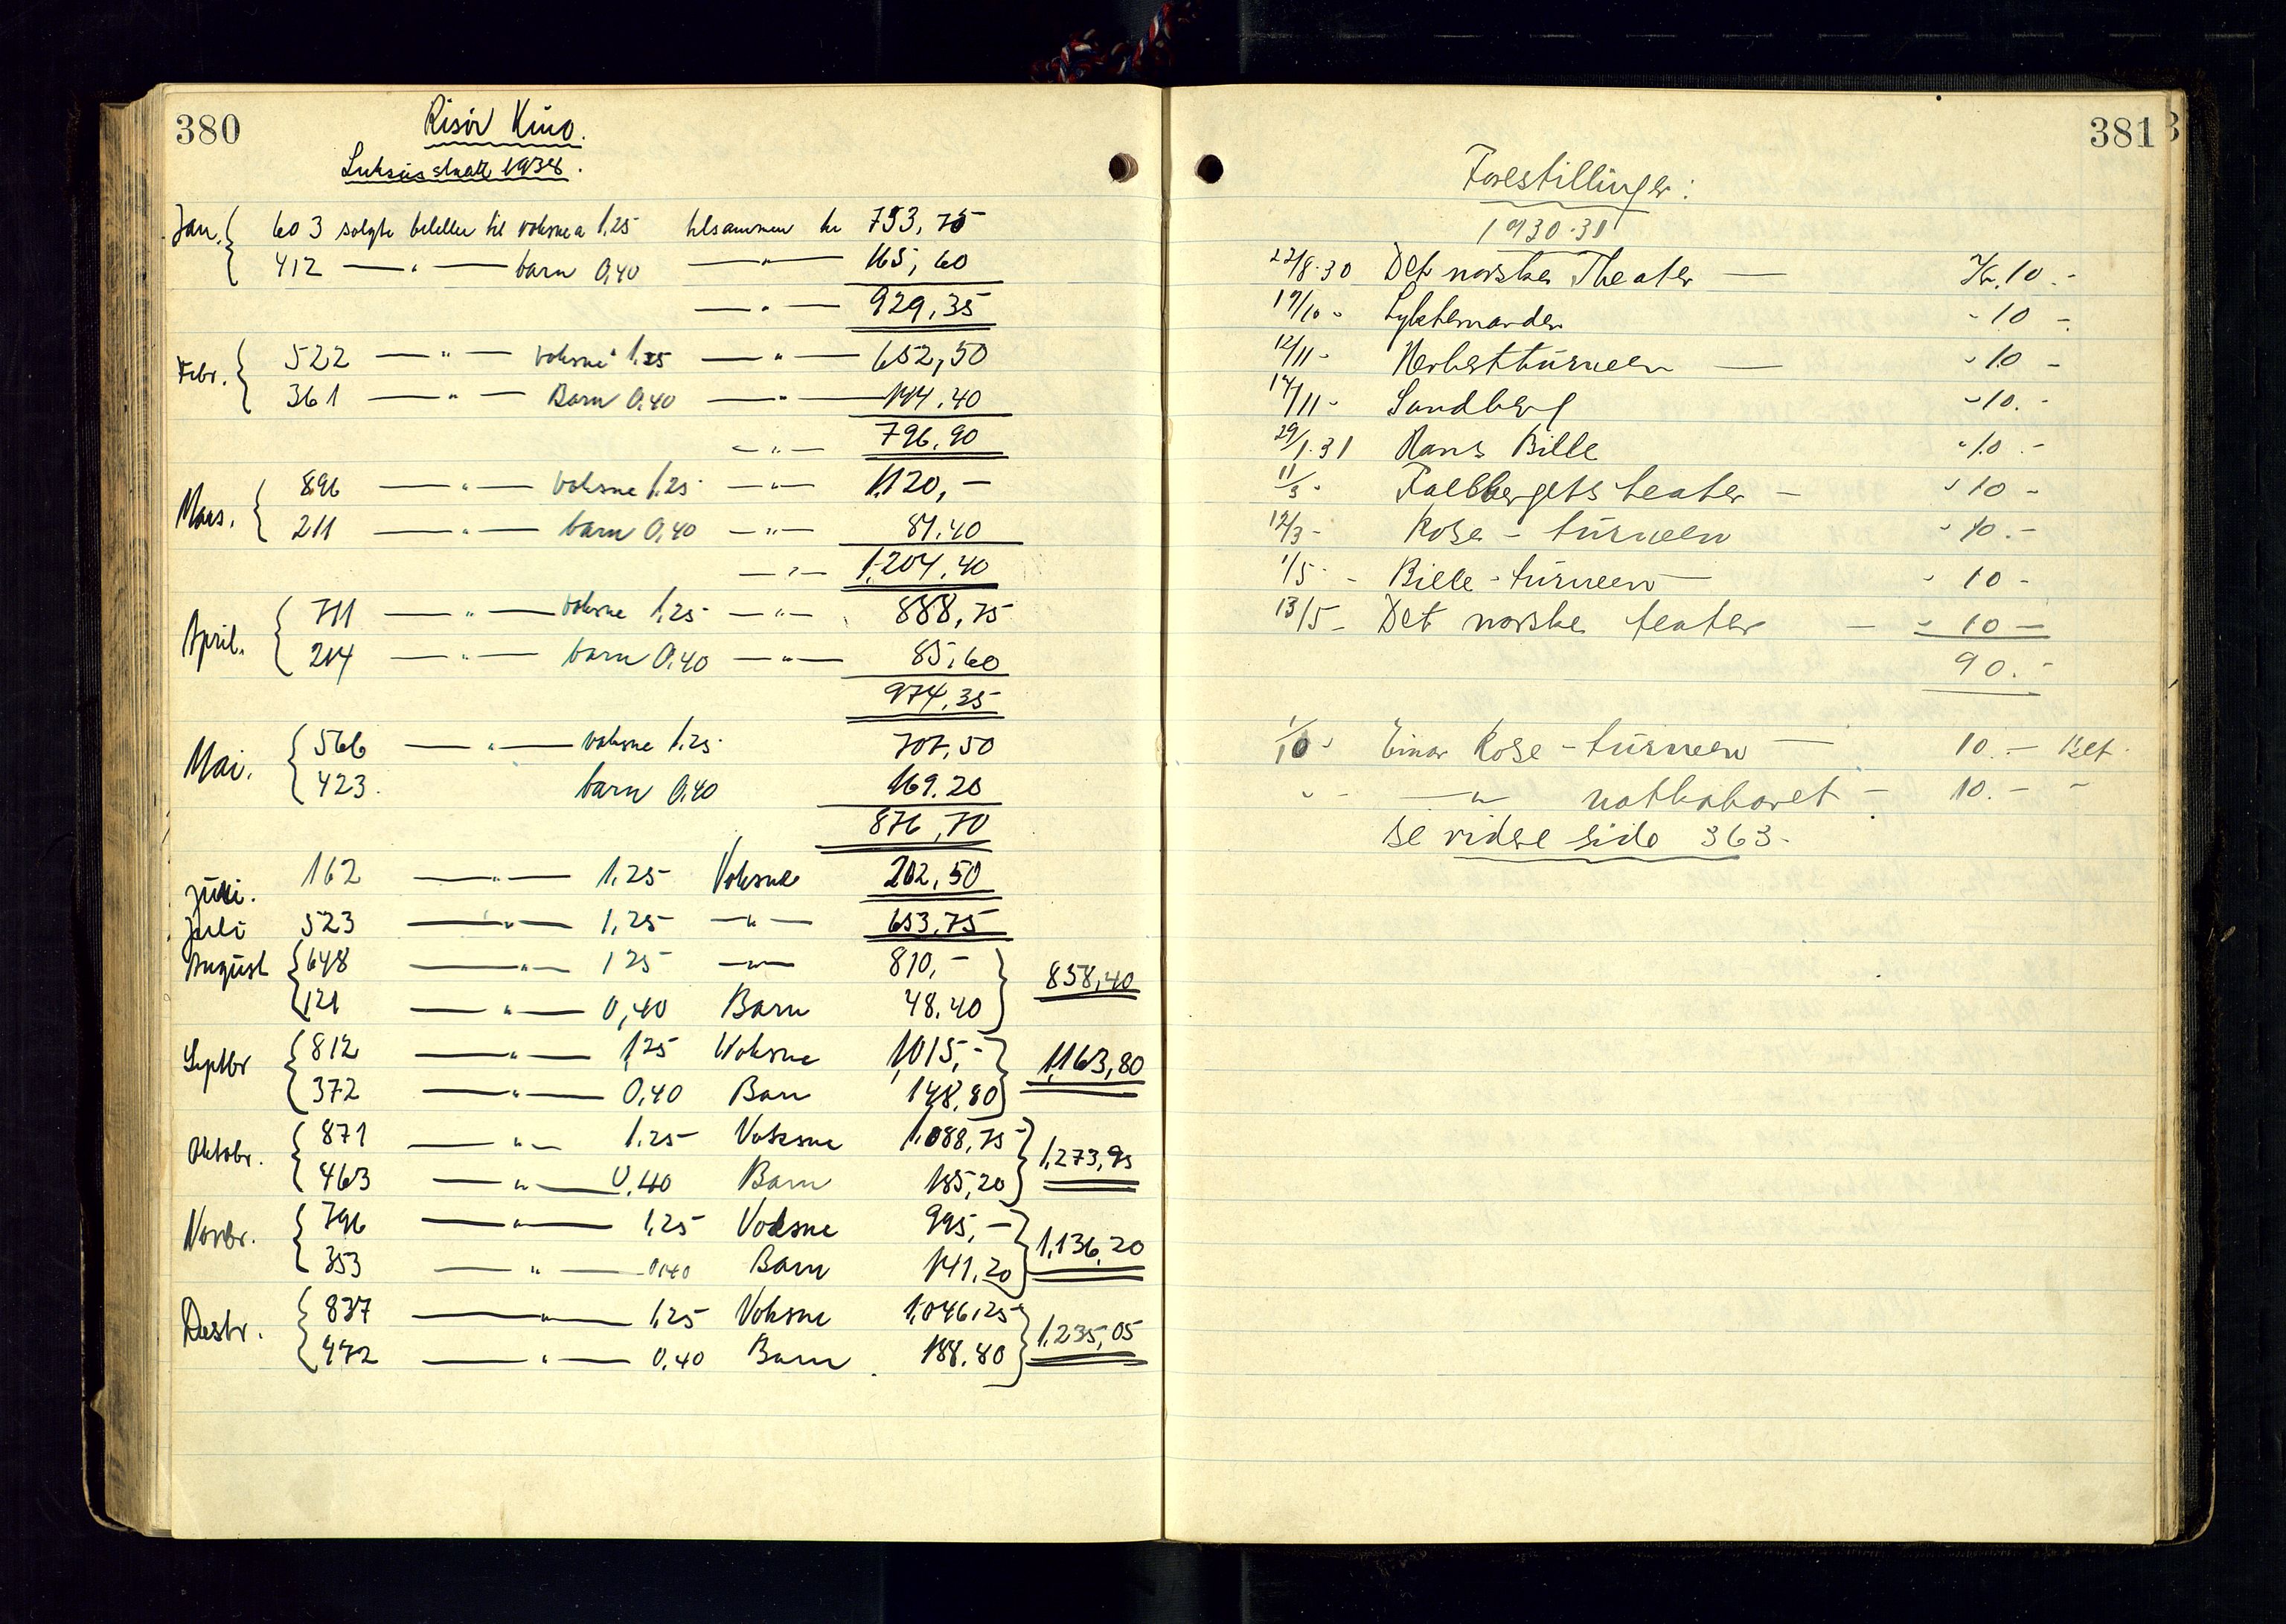 380
Risör Kino.
Luksusskatt 1934.
Jan. 603 solgte billetter til voksne a 1,25 tilsammen kr 753,75
412 — " — barn 0,40 — " — 165,60
— " — 929,35
Febr. 522 — " — voksne 1,25 — " — 652,50
361 — " — Barn 0,40 — " — 144.40
— " — 796,90
Mars. 896 — " — voksne 1.25 — " — 1120,-
211 — " — barn 0,40 — " — 84.40
— " — 1.204,40
April. 711 — " — voksne 1,25 — " — 888,75
214 — " — barn 0,40 — " — 85,60
974,35
Mai. 566 — " — voksne 1,25 707,50
423. barn 0,40 169.20
876,70
Juni. 162 — " — 1,25 Voksne 202,50
Juli 523 — " — 1,25 — " — 653,75
August 648 — " — 1 25 — " — 810,-
858,40
121 — " — 0,40 Barn 48.40
Septbr 812 — " — 1,25 Voksne 1,015,-
1,163,80
372 — " — 0,40 Barn 148,80
Oktobr. 871 — " — 1.25 Voksne 1,088,75
1,273,95
463 — " — 0,40 Barn 185,20
Novbr. 796 — " — 1,25 Voksne 995,-
1,136,20
353 — " — 0,40 Barn 141,20
Desbr. 837 — " — 1,25 Voksne 1,046,25
1,235,05
472 — " — 0,40 Barn 188,80
381
Forestillinger:
1930-31
22/8.30 Det norske Theater — Kr. 10.-
17/10 - Lyktemanden " 10 -
12/11 - Herbstturneen — " 10 -
14/11 - Sandberg " 10.-
29/1.31 Hans Bille " 10.-
11/3 - Falkbergets teater — " 10 -
12/3 - Rose - turneen " 10.-
1/5 - Bille - turneen — " 10 -
13/5 - Det norske teater — " 10 -
90.-
1/10 - Einar Rose - turneen — 10.- Bet.
" - — " — natkabaret — 10.- "
se vidre side 363-